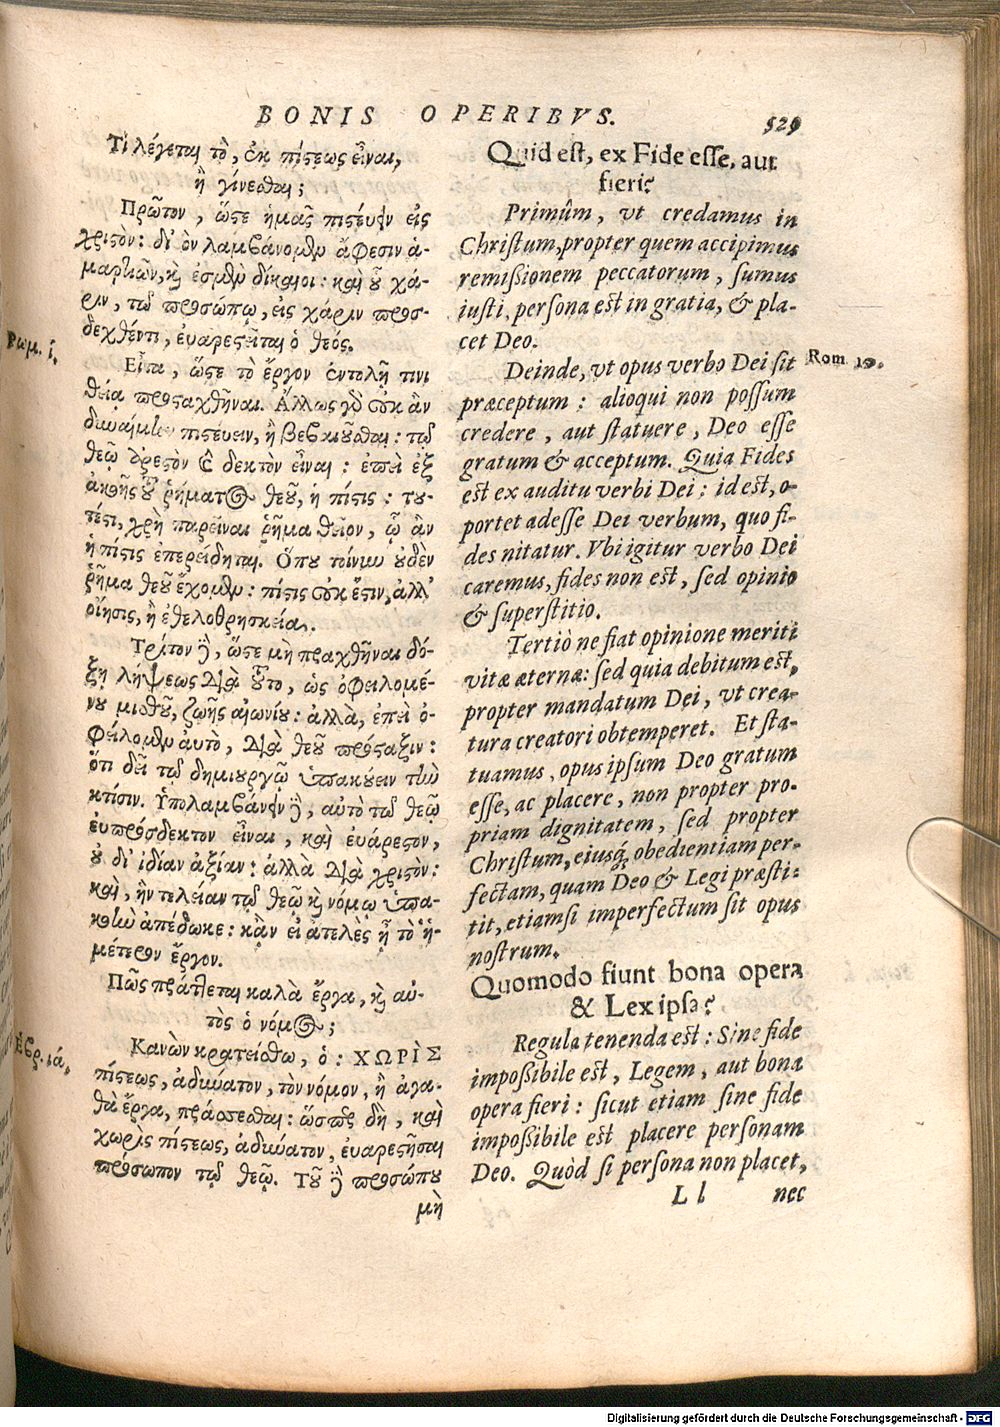 BONIS OPERIBVS.
529
Τί λέγεται τὸ, ἐκ πίστεως εἶναι,
ἢ γίνεσθαι;
Πρῶτον, ὥστε ἡμᾶς πιστεύειν εἰς
χριστὸν: δι' ὃν λαμβάνομεν ἄφεσιν ἁ-
μαρτιῶν, καὶ ἐσμὲν δίκαιοι: καὶ οὗ χά-
ριν, τῷ προσώπῳ, εἰς χάριν προσ-
δεχθέντι, εὐαρεστεῖται ὁ θεός.
Ρωμ. ί.
Εἶτα, ὥστε τὸ ἔργον ἐντολῇ τινι
θείᾳ προσταχθῆναι. Ἄλλως γὰρ οὐκ ἂν
δυναίμεν πιστεύειν, ἢ βεβαιοῦσθαι: τῷ
θεῷ ἀρεστὸν καὶ δεκτὸν εἶναι: ἐπεὶ ἐξ
ἀκοῆς τοῦ ῥήματος θεοῦ, ἡ πίστις: του-
τέστι, χρὴ παρεῖναι ῥῆμα θεῖον, ᾧ ἂν
ἡ πίστις ἐπερείδηται. Ὅπου τοίνυν οὐδὲν
ῥῆμα θεοῦ ἔχομεν: πίστις οὐκ ἔστιν, ἀλλ'
οἴησις, ἢ ἐθελοθρησκεία.
Τρίτον δὲ, ὥστε μὴ πραχθῆναι δό-
ξῃ λήψεως διὰ τοῦτο, ὡς ὀφειλομέ-
νου μισθοῦ, ζωῆς αἰωνίου: ἀλλὰ, ἐπεὶ ὀ-
φείλομεν αὐτὸ, διὰ θεοῦ πρόσταξιν:
ὅτι δεῖ τῷ δημιουργῷ ὑπακούειν τὴν
κτίσιν. Ὑπολαμβάνειν δὲ, αὐτὸ τῷ θεῷ
εὐπρόσδεκτον εἶναι, καὶ εὐάρεστον,
οὐ δι' ἰδίαν ἀξίαν: ἀλλὰ διὰ χριστὸν:
καὶ, ἣν τελείαν τῷ θεῷ καὶ νόμῳ ὑπα-
κοὴν ἀπέδωκε: κἂν εἰ ἀτελὲς ᾖ τὸ ἡ-
μέτερον ἔργον.
Πῶς πράττεται καλὰ ἔργα, καὶ αὐ-
τὸς ὁ νόμος;
Ἑβρ. ιά.
Κανὼν κρατείσθω, ὁ: ΧΩΡῚΣ
πίστεως, ἀδύνατον, τὸν νόμον, ἢ ἀγα-
θὰ ἔργα, πράσσεσθαι: ὥσπερ δὴ, καὶ
χωρὶς πίστεως, ἀδύνατον, εὐαρεστῆσαι
πρόσωπον τῷ θεῷ. Τοῦ δὲ προσώπου
μὴ
Quid est, ex Fide esse, aut
fieri?
Primûm, vt credamus in
Christum, propter quem accipimus
remißionem peccatorum, sumus
iusti, persona est in gratia, & pla-
cet Deo.
Deinde, vt opus verbo Dei sit
Rom 10.
præceptum: alioqui non possum
credere, aut statuere, Deo esse
gratum & acceptum. Quia Fides
est ex auditu verbi Dei: id est, o-
portet adesse Dei verbum, quo fi-
des nitatur. Vbi igitur verbo Dei
caremus, fides non est, sed opinio
& superstitio.
Tertiò ne fiat opinione meriti
vitæ æternæ: sed quia debitum est,
propter mandatum Dei, vt crea-
tura creatori obtemperet. Et sta-
tuamus, opus ipsum Deo gratum
esse, ac placere, non propter pro-
priam dignitatem, sed propter
Christum, eiusq́; obedientiam per-
fectam, quam Deo & Legi præsti-
tit, etiamsi imperfectum sit opus
nostrum.
Quomodo fiunt bona opera
& Lex ipsa?
Regula tenenda est: Sine fide
impoßibile est, Legem, aut bona
opera fieri: sicut etiam sine fide
impoßibile est placere personam
Deo. Quòd si persona non placet,
L l nec
Digitalisierung gefördert durch die Deutsche Forschungsgemeinschaft - DFG